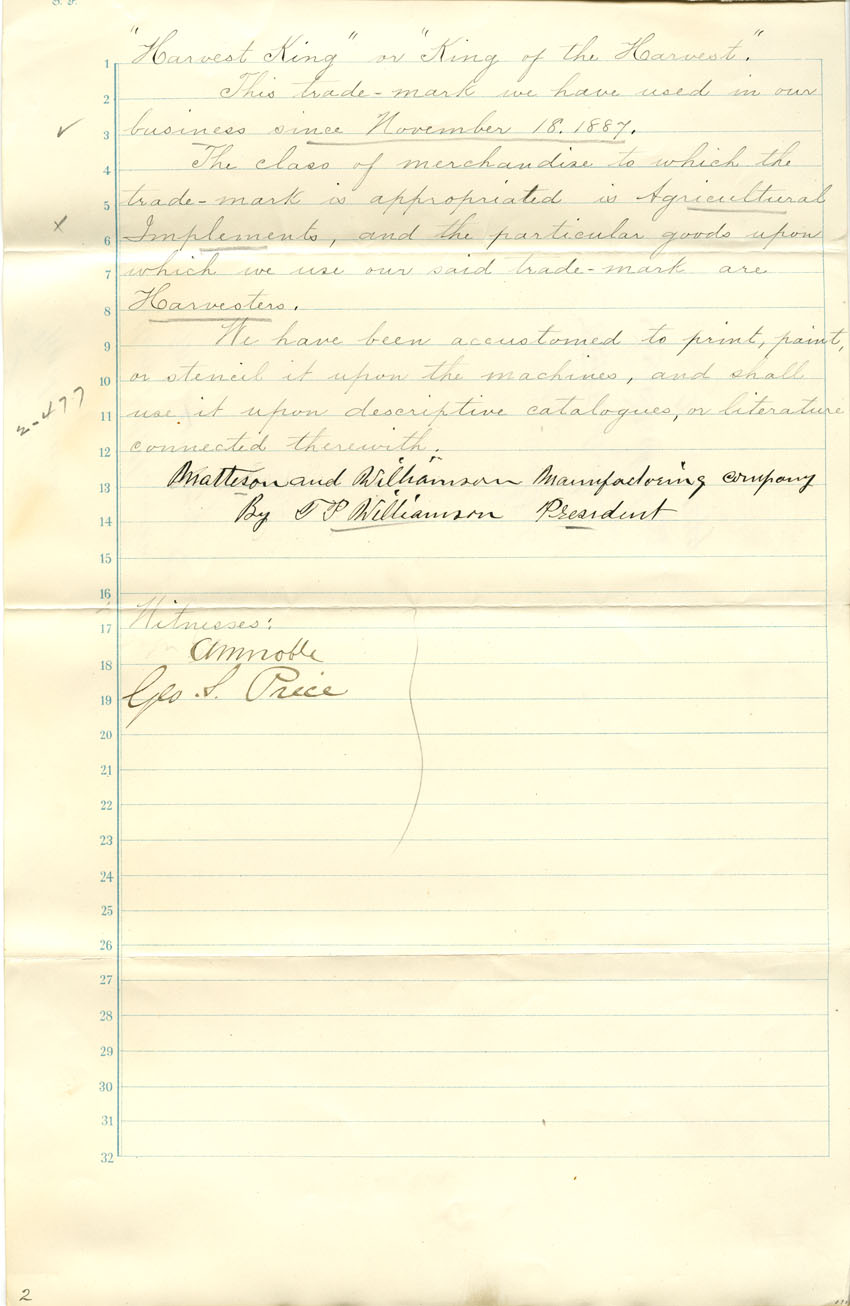 "Harvest King" or "King of the Harvest".
1
This trade-mark we have used in our
2
business since November 18. 1887.
3
The class of merchandise to which the
4
trade-mark is appropriated is Agricultural
5
Implements, and the particular goods upon
6
which we use our said trade-mark are
7
Harvesters.
8
We have been accustomed to print, paint,
9
or stencil it upon the machines, and shall
10
use it upon descriptive catalogues, or literature
11
2-477
connected therewith.
12
Matteson and Williamson Manufactoring company
13
By T P Williamson President
14
15
16
Witnesses:
17
18
Geo. S. Price
19
20
21
22
23
24
25
26
27
28
29
30
31
32
2